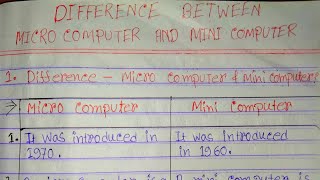 DIFFERENCE BETWEEN
MICRO COMPUTER AND MINI COMPUTER
1. Difference - Micro computer & Mini computer
→ Micro Computer Mini Computer
1. It was introduced in It was introduced
1970. in 1960.
mini computer is